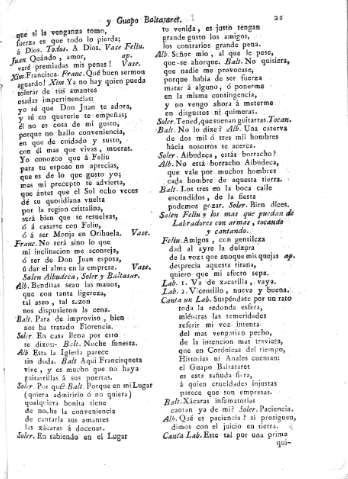 y Guapo Baltasaret. 21
que si la venganza tomo,
fuerza es que todo lo pierda;
á Dios. Todos. A Dios. Vase Feliu.
Juan Quándo, amor, ap.
veré premiadas mis penas? Vase.
Xim. Francisca. Franc. Qué buen sermon
aguardo! Xim. Ya no hay quien pueda
tolerar de tus amantes
osadas impertinencias;
yo sé que Don Juan te adora,
y sé con quererle te empeñas;
él no es cosa de mi gusto,
porque no hallo conveniencia,
en que de cuidado y susto,
con él mas que vivas, mueras.
Yo conozco que á Feliu
para tu esposo no aprecias,
que es de lo que gusto yo;
mas mi precepto te advierta,
que antes que el Sol ocho veces
dé su quotidiana vuelta
por la region cristalina,
será bien que te resuelvas,
ó á casarte con Feliu,
ó á ser Monja en Orihuela. Vase.
Franc. No será sino lo que
mi inclinacion me aconseja,
ó ser de Don Juan esposa,
ó dar el alma en la empresa. Vase.
Salen Albudeca, Soler y Baltasar.
Alb. Benditas sean las manos,
que con tanta ligereza,
tal aseo, y tal sazon
nos dispusieron la cena.
Balt. Para de improviso, bien
nos ha tratado Florencia.
Soler. En casa llena por esto
se dixo: Balt. Noche funesta.
Alb. Esta la Iglesia parece
sin duda. Balt. Aquí Francisqueta
vive, y es mucho que no haya
guitarrillas á sus puertas.
Soler. Por qué? Balt. Porque en mi Lugar
(quiera admitirlo ó no quiera)
qualquiera bonita tiene
de noche la conveniencia
de cantarla sus amantes
las xácaras á docenas.
Soler. En sabiendo en el Lugar
tu venida, es justo tengan
grande gusto los amigos,
los contrarios grande pena.
Alb. Señor mio, al que le pese,
que se ahorque. Balt. No quisiera,
que nadie me provocase,
porque habia de ser fuerza
matar á alguno, ó ponerme
en la misma contingencia,
y no vengo ahora á meterme
en disgustos ni quimeras.
Soler. Tened, que suenan guitarras. Tocan.
Balt. No lo dixe? Alb. Una caterva
de dos mil ó tres mil hombres
hácia nosotros se acerca.
Soler. Albudeca, estás borracho?
Alb. No está borracho Albudeca,
que vale por muchos hombres
cada hombre de aquesta tierra.
Balt. Los tres en la boca calle
escondidos, de la fiesta
podemos gozar. Soler. Bien dices.
Salen Feliu y los mas que puedan de
Labradores con armas, tocando
y cantando.
Feliu. Amigos, con gentileza
dad al ayre la dulzura
de la voz: que aunque mis quejas ap.
desprecia aquesta tirana,
quiero que mi afecto sepa.
Lab. 1. Va de xacarilla, vaya.
Lab. 2. Vicentillo, nueva y buena.
Canta un Lab. Suspéndate por un rato
toda la redonda esfera,
miéntras las temeridades
referir mi voz intenta
del mas venganzo pecho,
de la intencion mas traviesa,
que en Corónicas del tiempo,
Historias ni Anales cuentan:
el Guapo Baltasaret
es esta sañuda fiera,
á quien crueldades injustas
parece que son empresas.
Balt. Xácaras infamatorias
cantan ya de mí? Soler. Paciencia.
Alb. Qué es paciencia? si prosiguen,
dimos con el juicio en tierra.
Canta Lab. Este tal por una prima
qui-